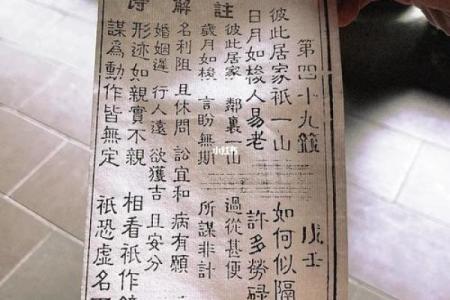 第四十九籤 戊壬
彼此居家祇一山 如何似隔
日月如梭人易老 許多勞碌
註
彼此居家 鄰裏一山 過從甚便
歲月如梭 言盼無期 所謀非計
解
名利阻 且休問 訟宜和 病有願
婚姻遲 行人遠 欲獲吉 且安分
形迹如親實不親 相看祇作
謀為動作皆無定 祇恐虛名
小红书